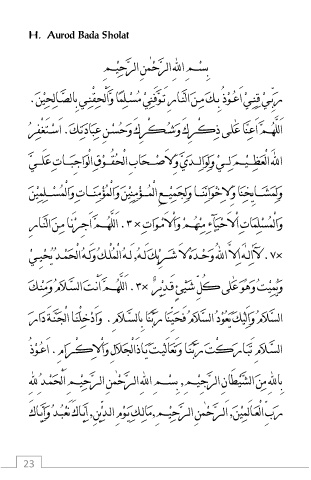 H. Aurod Bada Sholat
بِسْمِ اللهِ الرَّحْمٰنِ الرَّحِيْمِ
رَبِّيْ قِنِيْ اَعُوْذُ بِكَ مِنَ النَّارِ تَوَفَّنِيْ مُسْلِمًا وَأَلْحِقْنِي بِالصَّالِحِيْنَ.
اَللَّهُمَّ اَعِنَّا عَلَى ذِكْرِكَ وَشُكْرِكَ وَحُسْنِ عِبَادَتِكَ. اَسْتَغْفِرُ
اللهَ الْعَظِيْمَ لِيْ وَلِوَالِدَيَّ وَلِاَصْحَابِ الْحُقُوْقِ الْوَاجِبَاتِ عَلَيَّ
وَلِمَشَايِخِنَا وَلِاِخْوَانِنَا وَلِجَمِيْعِ الْمُؤْمِنِيْنَ وَالْمُؤْمِنَاتِ وَالْمُسْلِمِيْنَ
وَالْمُسْلِمَاتِ اْلاَحْيَآءِ مِنْهُمْ وَاْلاَمْوَاتِ ×٣. اَللَّهُمَّ اَجِرْنَا مِنَ النَّارِ
×٧. لَآاِلٰهَ اِلاَّ اللهُ وَحْدَهُ لاَ شَرِيْكَ لَهُ، لَهُ الْمُلْكُ وَلَهُ الْحَمْدُ يُحْيِيْ
وَيُمِيْتُ وَهُوَ عَلَى كُلِّ شَيْئٍ قَدِيْرٌ ×٣. اَللَّهُمَّ اَنْتَ السَّلاَمُ وَمِنْكَ
السَّلاَمُ وَاِلَيْكَ يَعُوْدُ السَّلاَمُ فَحَيِّنَا رَبَّنَا بِالسَّلاَمِ. وَاَدْخِلْنَا الْجَنَّةَ دَارَ
السَّلاَمِ تَبَارَكْتَ رَبَّنَا وَتَعَالَيْتَ يَاذَاالْجَلاَلِ وَاْلاِكْرَامِ. اَعُوْذُ
بِاللهِ مِنَ الشَّيْطَانِ الرَّجِيْمِ, بِسْمِ اللهِ الرَّحْمٰنِ الرَّحِيْمِ اَلْحَمْدُ لِلهِ
رَبِّ الْعَالَمِيْنَ, اَلرَّحْمٰنِ الرَّحِيْمِ, مَالِكِ يَوْمِ الدِّيْنِ, اِيَّاكَ نَعْبُدُ وَاِيَّاكَ
23